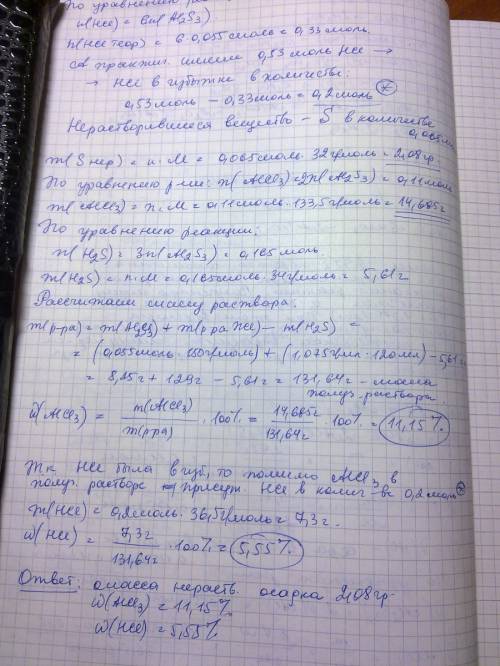 По уравнению
n(HCl) = 6n(Al2S3)
n(HCl теор) = 6·0,055моль = 0,33моль.
практич. имеем 0,53 моль HCl →
→ HCl в избытке в количестве:
0,53моль – 0,33моль = 0,2 моль *
Нерастворившееся вещество – S в количестве
0,065моль
m(S нер) = n·M = 0,065моль·32г/моль = 2,08гр.
По уравнению р-ции: n(AlCl3) = 2n(Al2S3) = 0,11моль
m(AlCl3) = n·M = 0,11моль·133,5г/моль = 14,685г
По уравнению реакции:
n(H2S) = 3n(Al2S3) = 0,165 моль.
m(H2S) = n·M = 0,165моль·34г/моль = 5,61г
Рассчитаем массу раствора:
m(р-ра) = m(Al2S3) + m(р-ра HCl) – m(H2S) =
= (0,055моль·150г/моль) + (1,075г/мл·120мл) – 5,61г
= 8,25г + 129г – 5,61г = 131,64г – масса
получ. раствора.
ω(AlCl3) = m(AlCl3)/m(р-ра) · 100% = 14,685г/131,64г · 100% = 11,15%
Т.к. HCl была в изб, то помимо AlCl3 в
получ. растворе присут HCl в колич-ве 0,2моль *
m(HCl) = 0,2моль·36,5г/моль = 7,3г.
ω(HCl) = 7,3г/131,64г · 100% = 5,55%
Ответ: масса нераств. осадка 2,08гр.
ω(AlCl3) = 11,15%
ω(HCl) = 5,55%